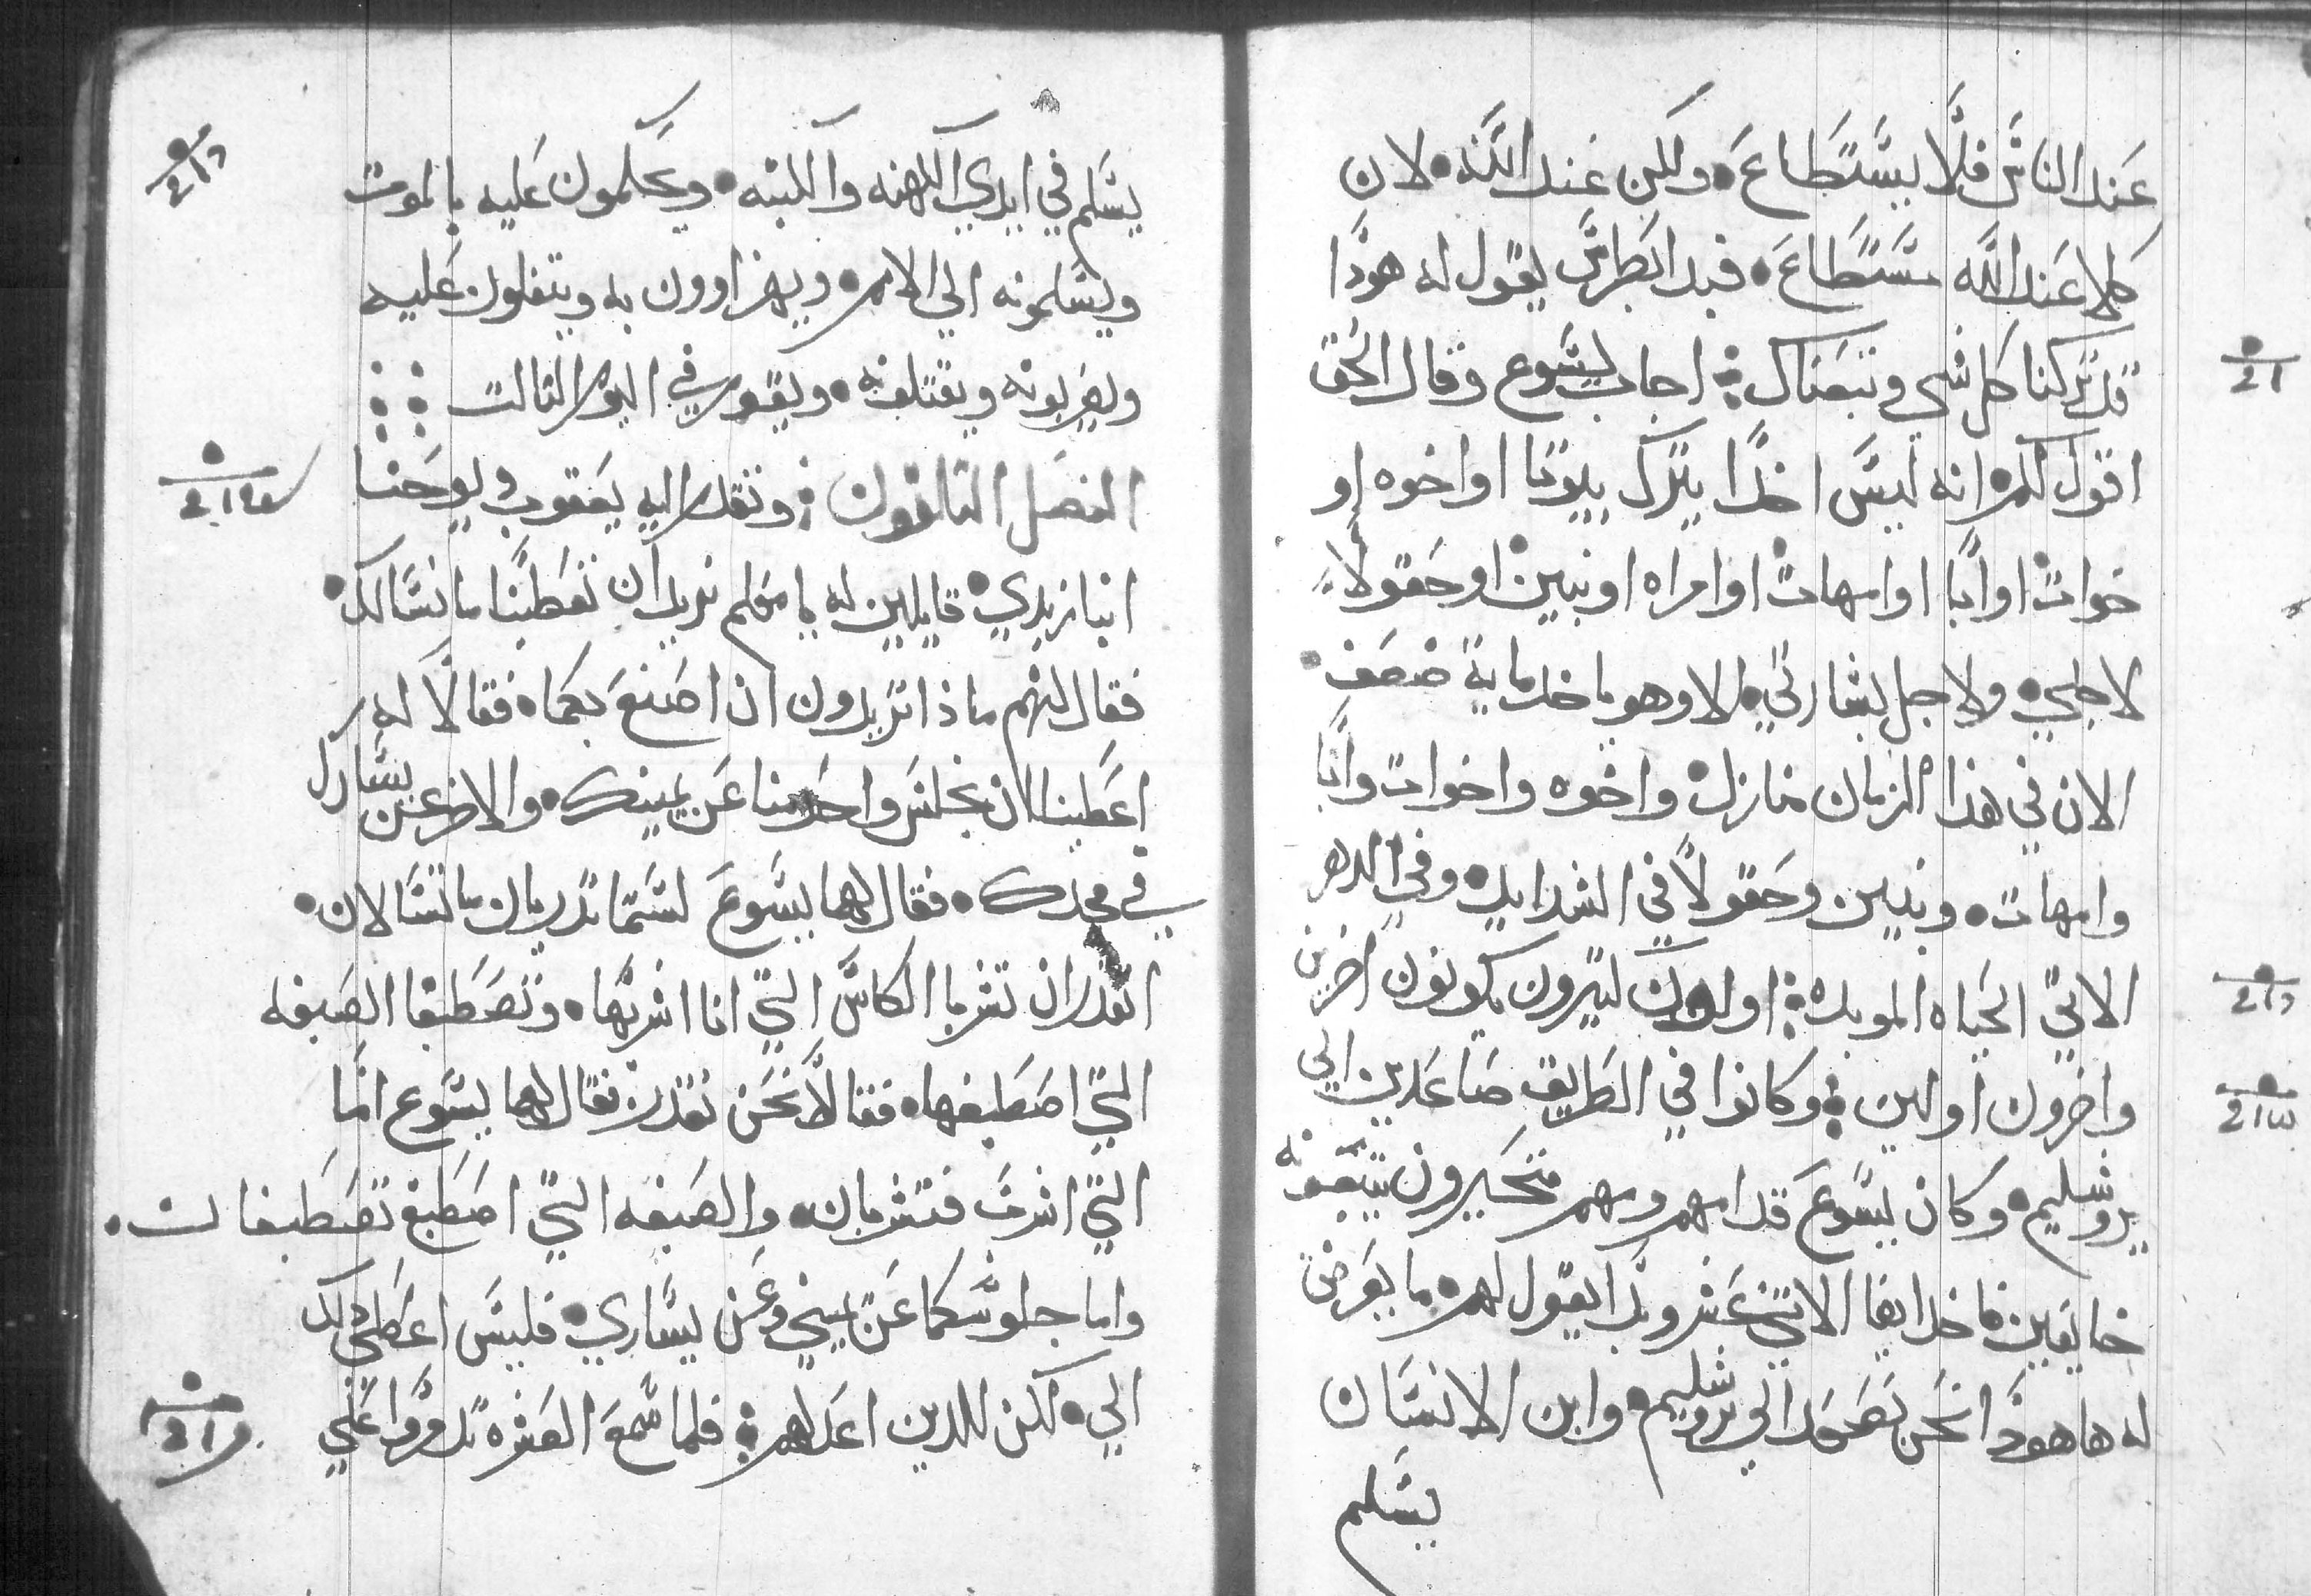 عند الناس فلا يستطاع۰ ولكن عند الله۰ لان
كلا عند الله مستطاع۰ فبدا بطرس يقول له هودا
قد تركنا كل شي وتبعناك ⁘ اجاب يسوع وقال الحق
اقول لكم انه ليس احدا يترك بيوتا او اخوه او
خوات او ابا او امهات او امراه او بنين او حقولا
لاجلي۰ ولاجل بشارتي۰ الا وهو ياخد ماية ضعف
الان في هذا الزمان منازل واخوه واخوات وابا
وامهات۰ وبنين وحقولا في الشدايد۰ وفي الدهر
الاتي الحياه الموبده ⁘ اولون كتيرون يكونون اخرين
واخرون اولين ⁘ وكانوا في الطريق صاعدين الي
يروشليم۰ وكان يسوع قدامهم وهم متحيرون يتبعونه
خايفين فاخد ايضا الاتني عشر وبدا يقول لهم۰ ما يعرض
له ها هودا نحن نصعد الي يروشليم۰ وابن الانسان
يسلم
يسلم في ايدي الكهنه والكتبه۰ ويحكمون عليه بالموت
ويسلمونه الي الامم۰ ويهزاوون به ويتفلون عليه
ويضربونه ويقتلونه۰ ويقوم في اليوم التالت
الفصل التالتون ⁘ وتقدم اليه يعقوب ويوحنا
ابنا زبدي۰ قايلين له يا معلم نريد ان تعطينا ما نسالك۰
فقال لهم ماذا تريدون ان اصنع بكما۰ فقالا له
اعطينا ان يجلس واحد منا عن يمينك۰ والاخر عن يسارك
في مجدك۰ فقال لهما يسوع لستما تدريان ما تسالان۰
اتقدران تشربا الكاس التي انا اشربها۰ وتصطبغا الصبغه
التي اصطبغها۰ فقالا نحن نقدر۰ فقال لهما يسوع اما
التي اشرب فتشربان۰ والصبغه التي اصطبغ تصطبغان۰
واما جلوسكما عن يميني وعن يساري۰ فليس اعطي دلك
الي۰ لكن للدين اعد لهم ⁘ فلما سمع العشره تدمروا علي